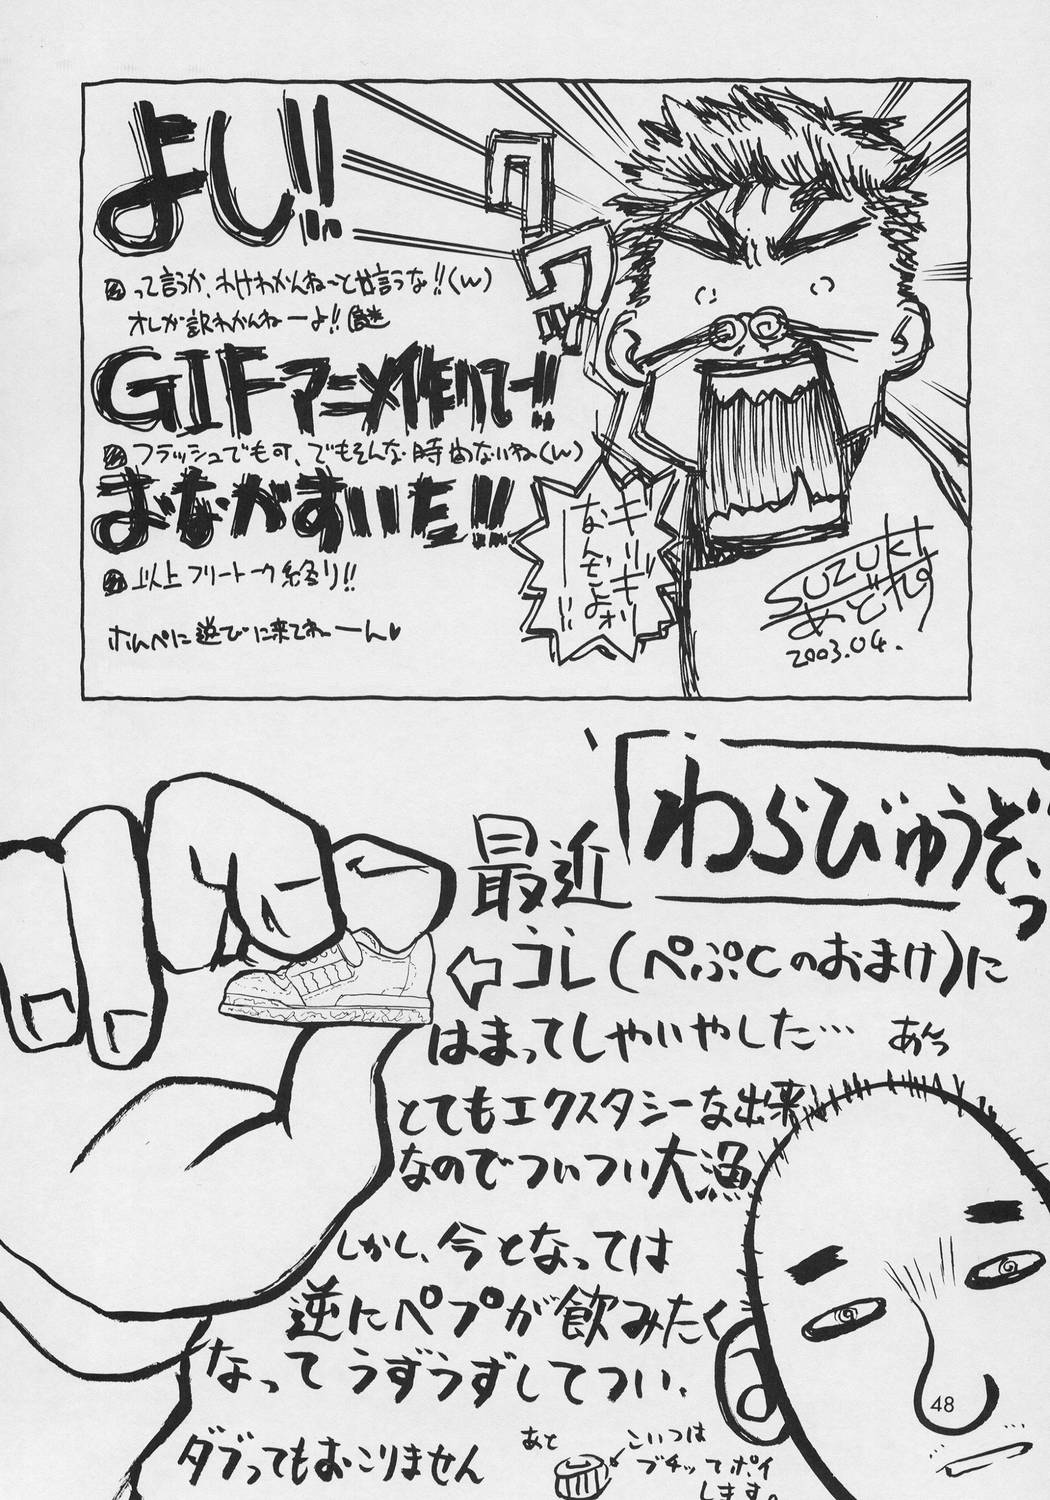 よし!!
って言うか、わけわかんね〜とか言うな!!(w)
オレが訳わかんねーよ!!謎
GIFアニメ作りて-!!
フラッシュでも可、でもそんな時間ないね(w)
おなかすいた!!
以上フリートーク終り!!
ホんペに遊びに来てねーーん♥
クワッ
ギリギリ
なんだよォ
ーー!!
SUZUKI
あどれす
2003.04.
「わらびゅうぞ、っ
最近
⇦コレ(ぺぷCのおまけ)に
はまってしゃいやした…
あんっ
とてもエクスタシーな出来
なのでついつい大漁
しかし、今となっては
逆にペプが飲みたく
なってうずうずしてつい、
ダブってもおこりません
あと
こいつは
ブチッてポイ
します。
48